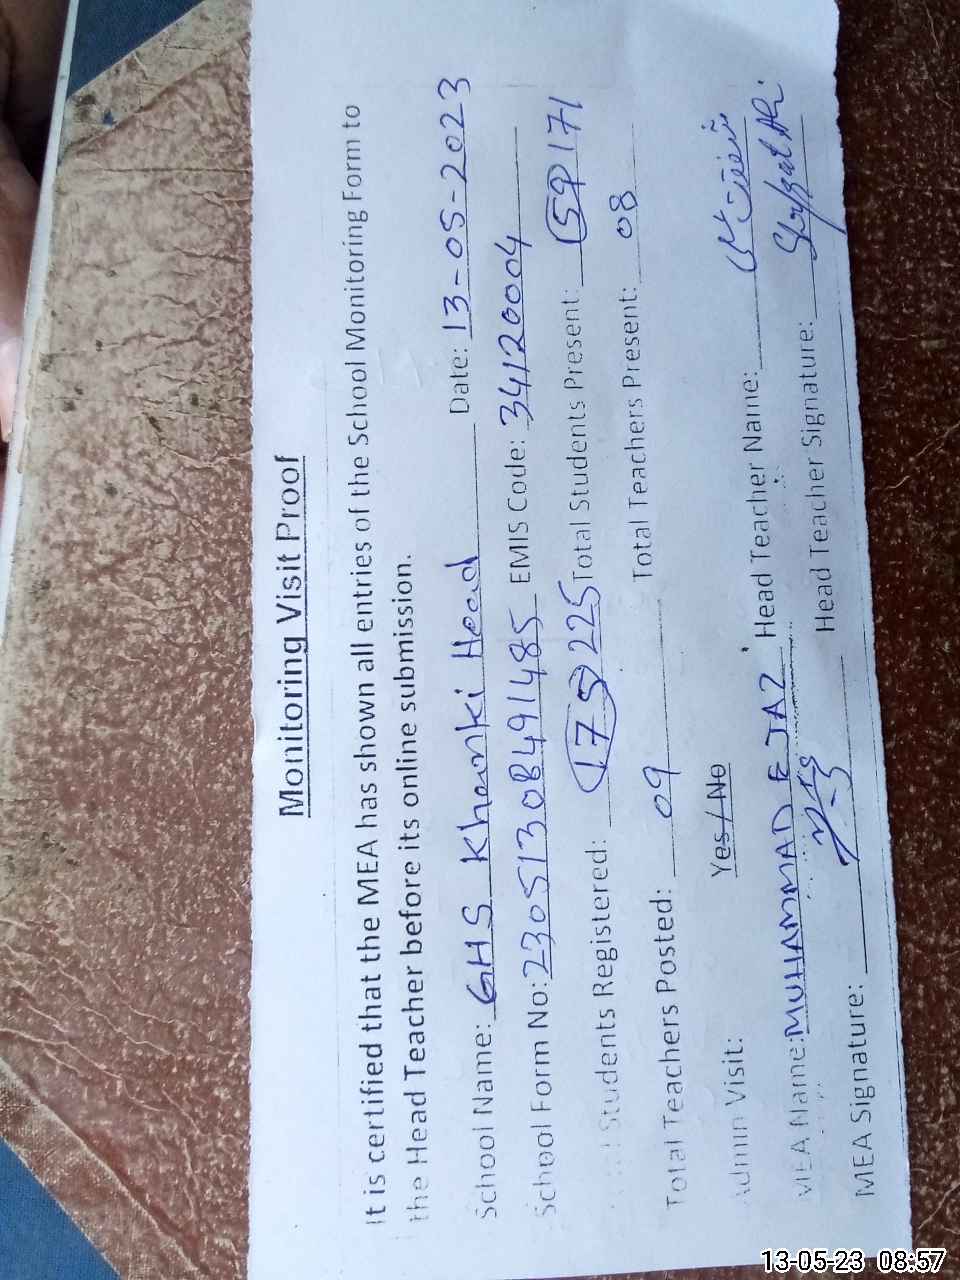 Monitoring Visit Proof
It is certified that the MEA has shown all entries of the School Monitoring Form to
the Head Teacher before its online submission.
School Name: GHS Khanki Head Date: 13-05-2023
School Form No: 23051308491485 EMIS Code: 34120004
Students Registered: (175) 225 Total Students Present: (59) 171
Total Teachers Posted: 09 Total Teachers Present: 08
Admin Visit: Yes/No
MEA Name: MUHAMMAD EJAZ Head Teacher Name:
MEA Signature: Head Teacher Signature: Shafqat Ali
13-05-23 08:57